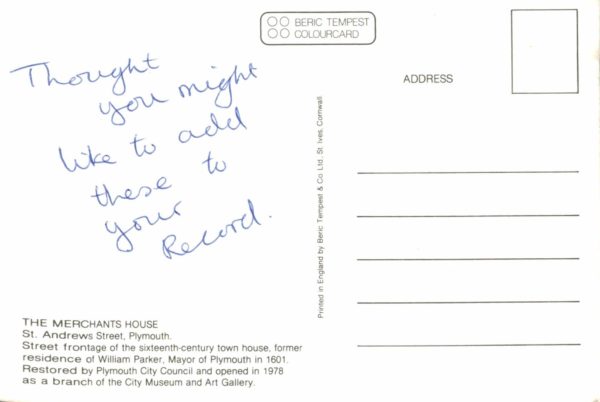 BERIC TEMPEST
COLOURCARD
Thought
you might
like to add
these to
your
Record.
ADDRESS
Printed in England by Beric Tempest & Co. Ltd. St. Ives, Cornwall.
THE MERCHANTS HOUSE
St. Andrews Street, Plymouth.
Street frontage of the sixteenth-century town house, former
residence of William Parker, Mayor of Plymouth in 1601.
Restored by Plymouth City Council and opened in 1978
as a branch of the City Museum and Art Gallery.